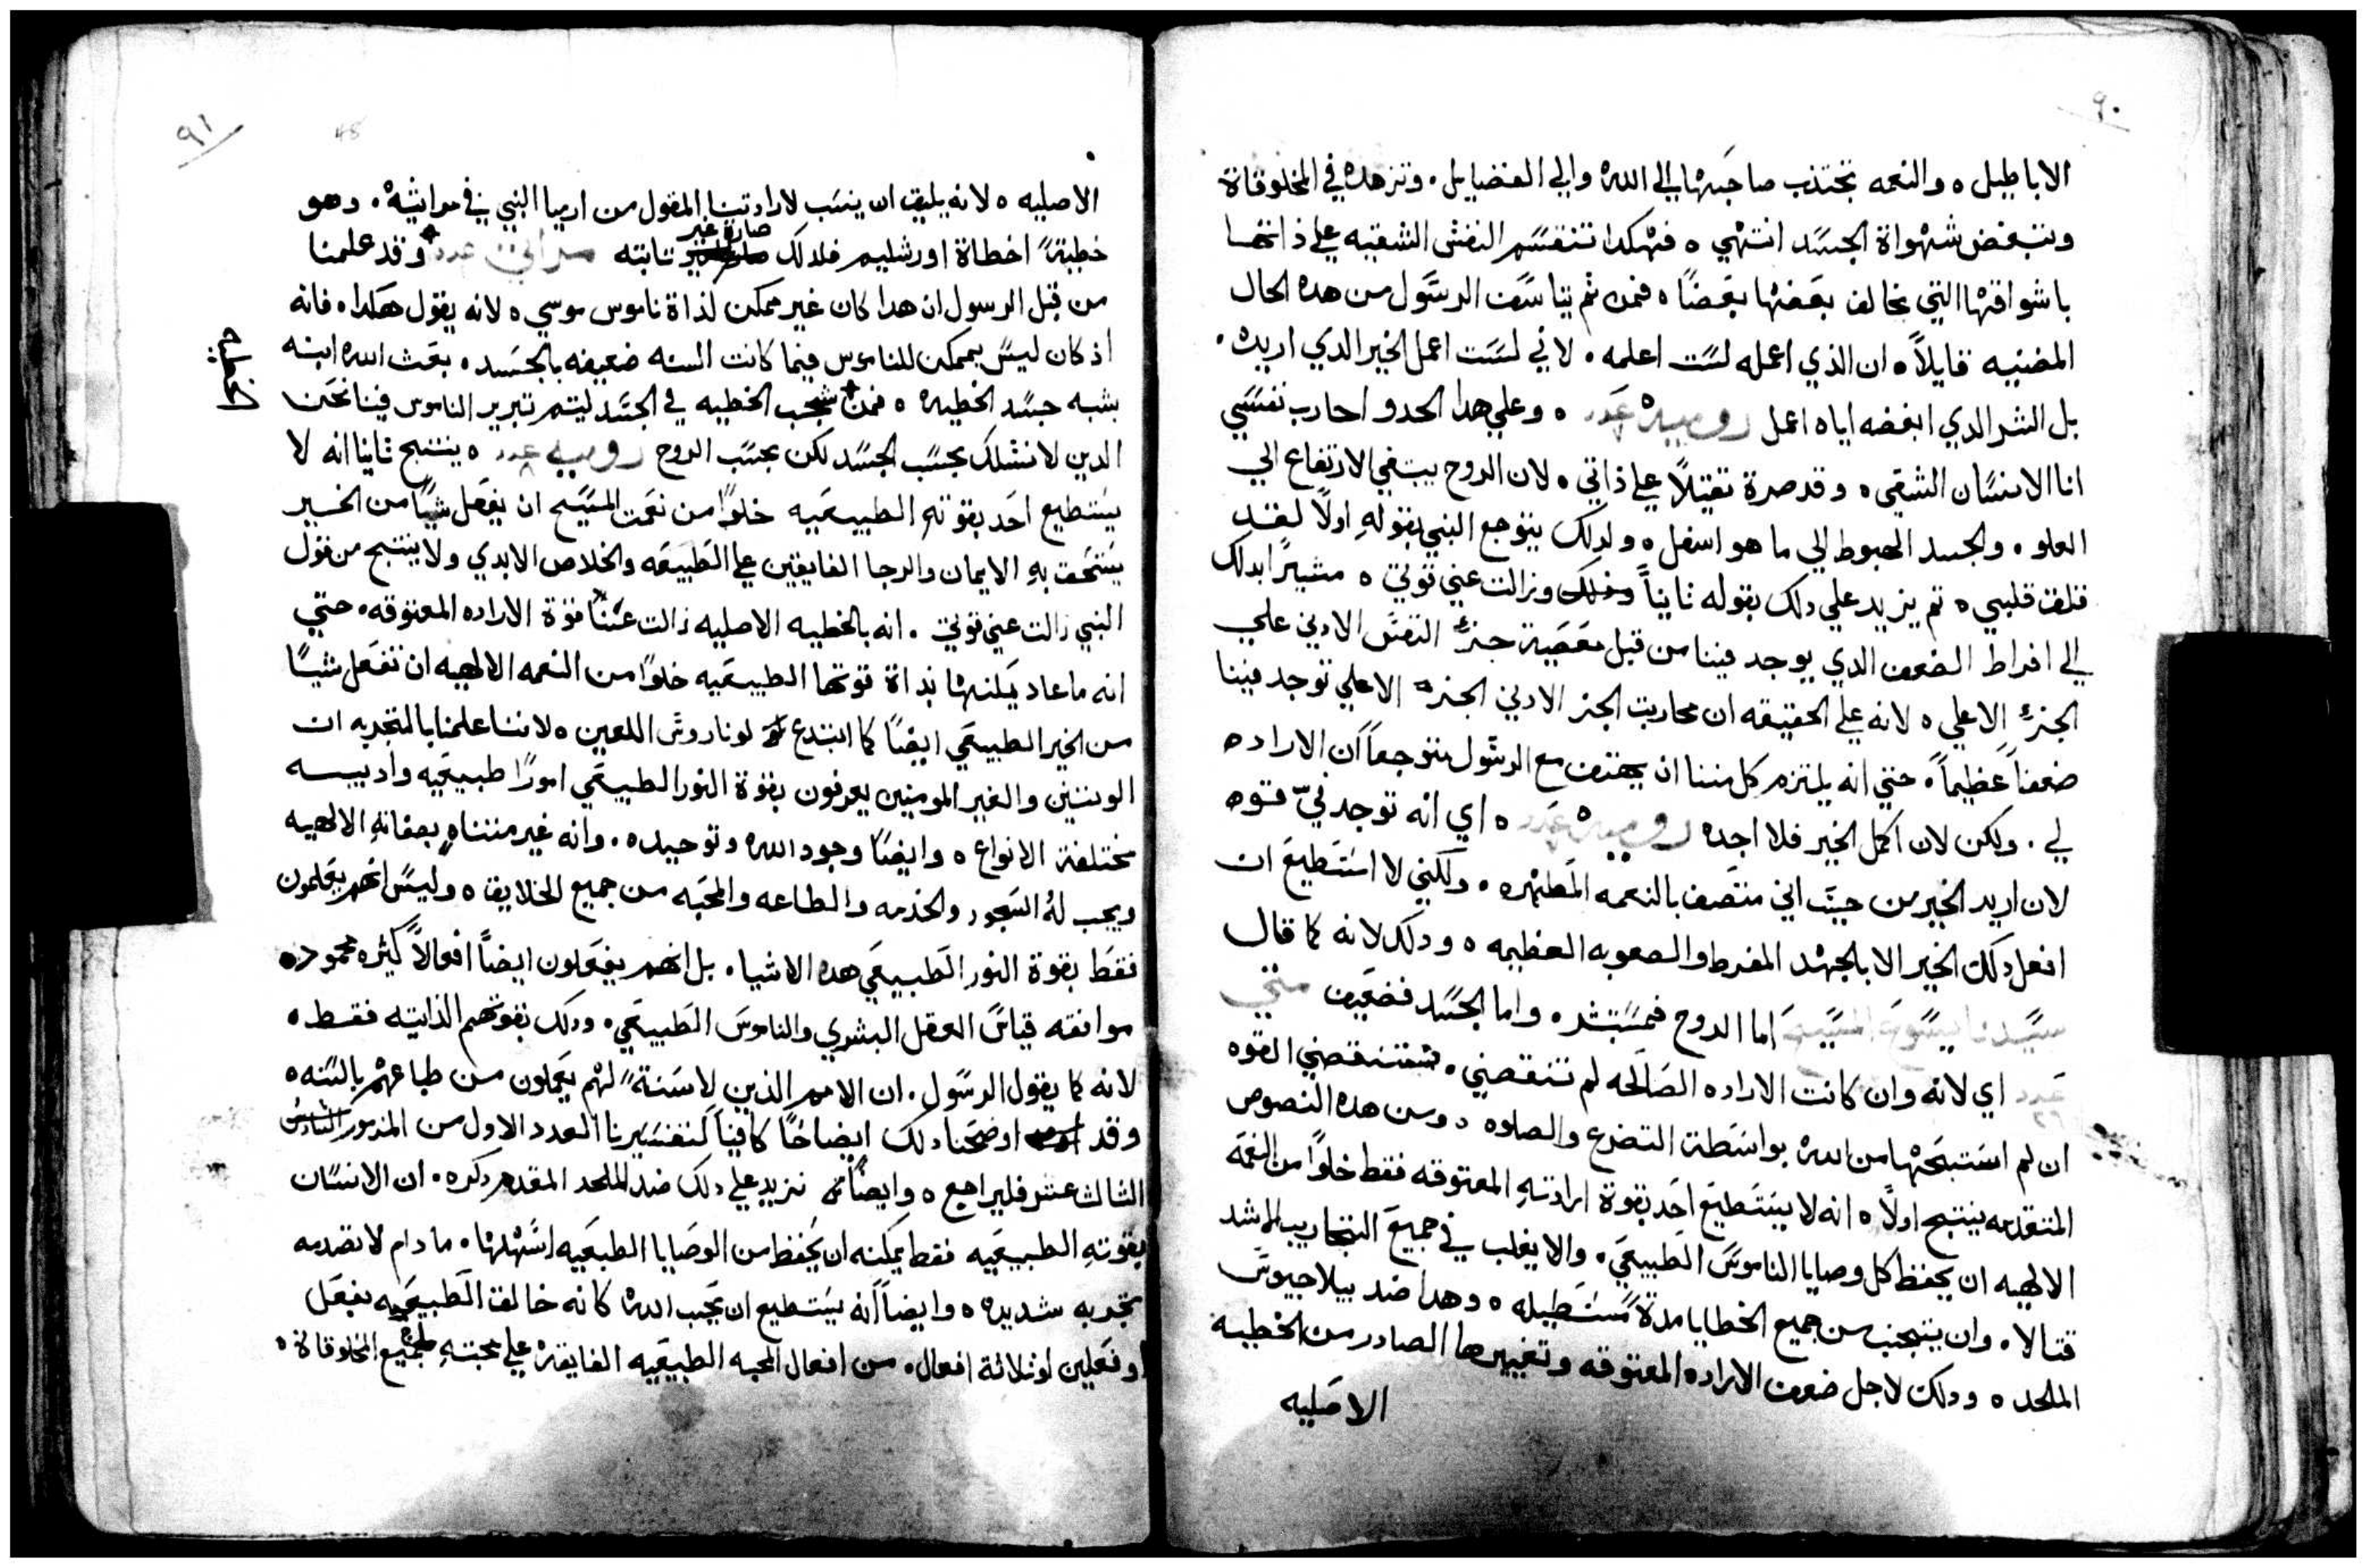 ٩٠
الاباطيل ه والنعمه تجتذب صاحبها الي الله والي الفضايل . وتزهده في المخلوقاة
وتبغض شهواة الجسد انتهي ه فهكدا تنقسم النفس الشقيه علي ذاتها
باشواقها التي تخالف بعضها بعضاً ه فمن ثم يتاسف الرسول من هده الحال
المضنيه قايلاً ه ان الذي اعمله لست اعلمه . لاني لست اعمل الخير الدي اريده .
بل الشر الدي ابغضه اياه اعمل روميه عدد ه وعلي هدا الحدو احارب نفسي
انا الانسان الشقي ه وقد صرة ثقيلاً علي ذاتي ه لان الروح يبتغي الارتفاع الي
العلو . والجسد الهبوط الي ما هو اسفل ه ولدلك يتوجع النبي بقوله اولاً لقد
قلق قلبي ه تم يزيد علي دلك بقوله تانياً وزالت عني قوتي ه مشيراً بدلك
الي افراط الضعف الدي يوجد فينا من قبل معصية جزء النفس الادني علي
الجزء الاعلي ه لانه علي الحقيقه ان محاربة الجز الادني الجزء الاعلي توجد فينا
ضعفاً عظيماً . حتي انه يلتزم كل مننا ان يهتف مع الرسول متوجعاً ان الاراده
لي . ولكن لان اكمل الخير فلا اجده روميه عدد ه اي انه توجد فيّ قوه
لان اريد الخير من حيت اني متصف بالنعمه المطهره . ولكني لا استطيع ان
افعل دلك الخير الا بالجهد المفرط والصعوبه العظيمه ه ودلك لانه كما قال
سيدنا يسوع المسيح اما الروح فمستبشر . واما الجسد فضعيف متي
عدد ٢٦ اي لانه وان كانت الاراده الصالحه لم تنقصني . فتنقصني القوه
ان لم استبحتها من الله بواسطة التضرع والصلوه ه ومن هده النصوص
المتقدمه ينتبج اولاً ه انه لا يستطيع احد بقوة ارادته المعتوقه فقط خلواً من النعمه
الالهيه ان يحفظ كل وصايا الناموس الطبيعي . والا يغلب في جميع التجاريب الاشد
قتالا . وان يتجنب من جميع الخطايا مدةً مستطيله ه وهدا ضد بيلاجيوس
الملحد ه ودلك لاجل ضعف الاراده المعتوقه وتغييرها الصادر من الخطية
الاصليه
٩١
48
الاصليه ه لانه يليق ان ينسب لارادتينا المقول من ارميا النبي في مراثيه . وهو
خطيةً اخطاة اورشليم فلدلك صارة غير تابته مراتي عدد وقد علمنا
من قبل الرسول ان هدا كان غير ممكن لذاة ناموس موسي ه لانه يقول هكدا . فانه
اذ كان ليس بممكن للناموس فيما كانت السنه ضعيفه بالجسد . بعث الله ابنه
بشبه جسد الخطيه ه فمن شجب الخطيه في الجسد ليتم تبرير الناموس فينا نحن
الدين لا نسلك بحسب الجسد لكن بحسب الروح روميه عدد ٨ ه ينتبج تانيا انه لا
يستطيع احد بقوته الطبيعيه خلواً من نعمت المسيح ان يفعل شياً من الخير
يستحق به الايمان والرجا الفايقين علي الطبيعه والخلاص الابدي ولا ينتبج من قول
النبي زالت عني قوتي . انه بالخطيه الاصليه زالت عننا قوة الاراده المعتوقه . حتي
انه ما عاد يمكنها بذاة قوتها الطبيعيه خلواً من النعمه الالهيه ان تفعل شياً
من الخير الطبيعي ايضاً كما ابتدع لوتاروس اللعين ه لاننا علمنا بالتجربه ان
الوتنيين والغير المومنين يعرفون بقوة النور الطبيعي اموراً طبيعيه وادبيه
مختلفة الانواع ه وايضاً وجود الله وتوحيده . وانه غير متناهٍ بصفاته الالهيه
ويجب له السجود والخدمه والطاعه والمحبه من جميع الخلايق ه وليس انهم يعلمون
فقط بقوة النور الطبيعي هده الاشيا . بل انهم يفعلون ايضاً افعالاً كثيره محموده
موافقه قياس العقل البشري والناموس الطبيعي . ودلك بقوتهم الذاتيه فقط .
لانه كما يقول الرسول . ان الامم الذين لا سنةً لهم يعملون من طباعهم بالسنه ه
وقد اوضحنا دلك ايضاحاً كافياً لتفسيرنا العدد الاول من المزمور السادس
التالت عشر فليراجع ه وايضاً نزيد علي دلك ضد الملحد المقدم دكره . ان الانسان
بقوته الطبيعيه فقط يمكنه ان يحفظ من الوصايا الطبيعيه اسهلها . ما دام لا تصدمه
تجربه شديده ه وايضاً انه يستطيع ان يحب الله كانه خالق الطبيعه بفعل
او فعلين او ثلاثة افعال . من افعال المحبه الطبيعيه الفايقه علي محبته لجميع المخلوقاة ه